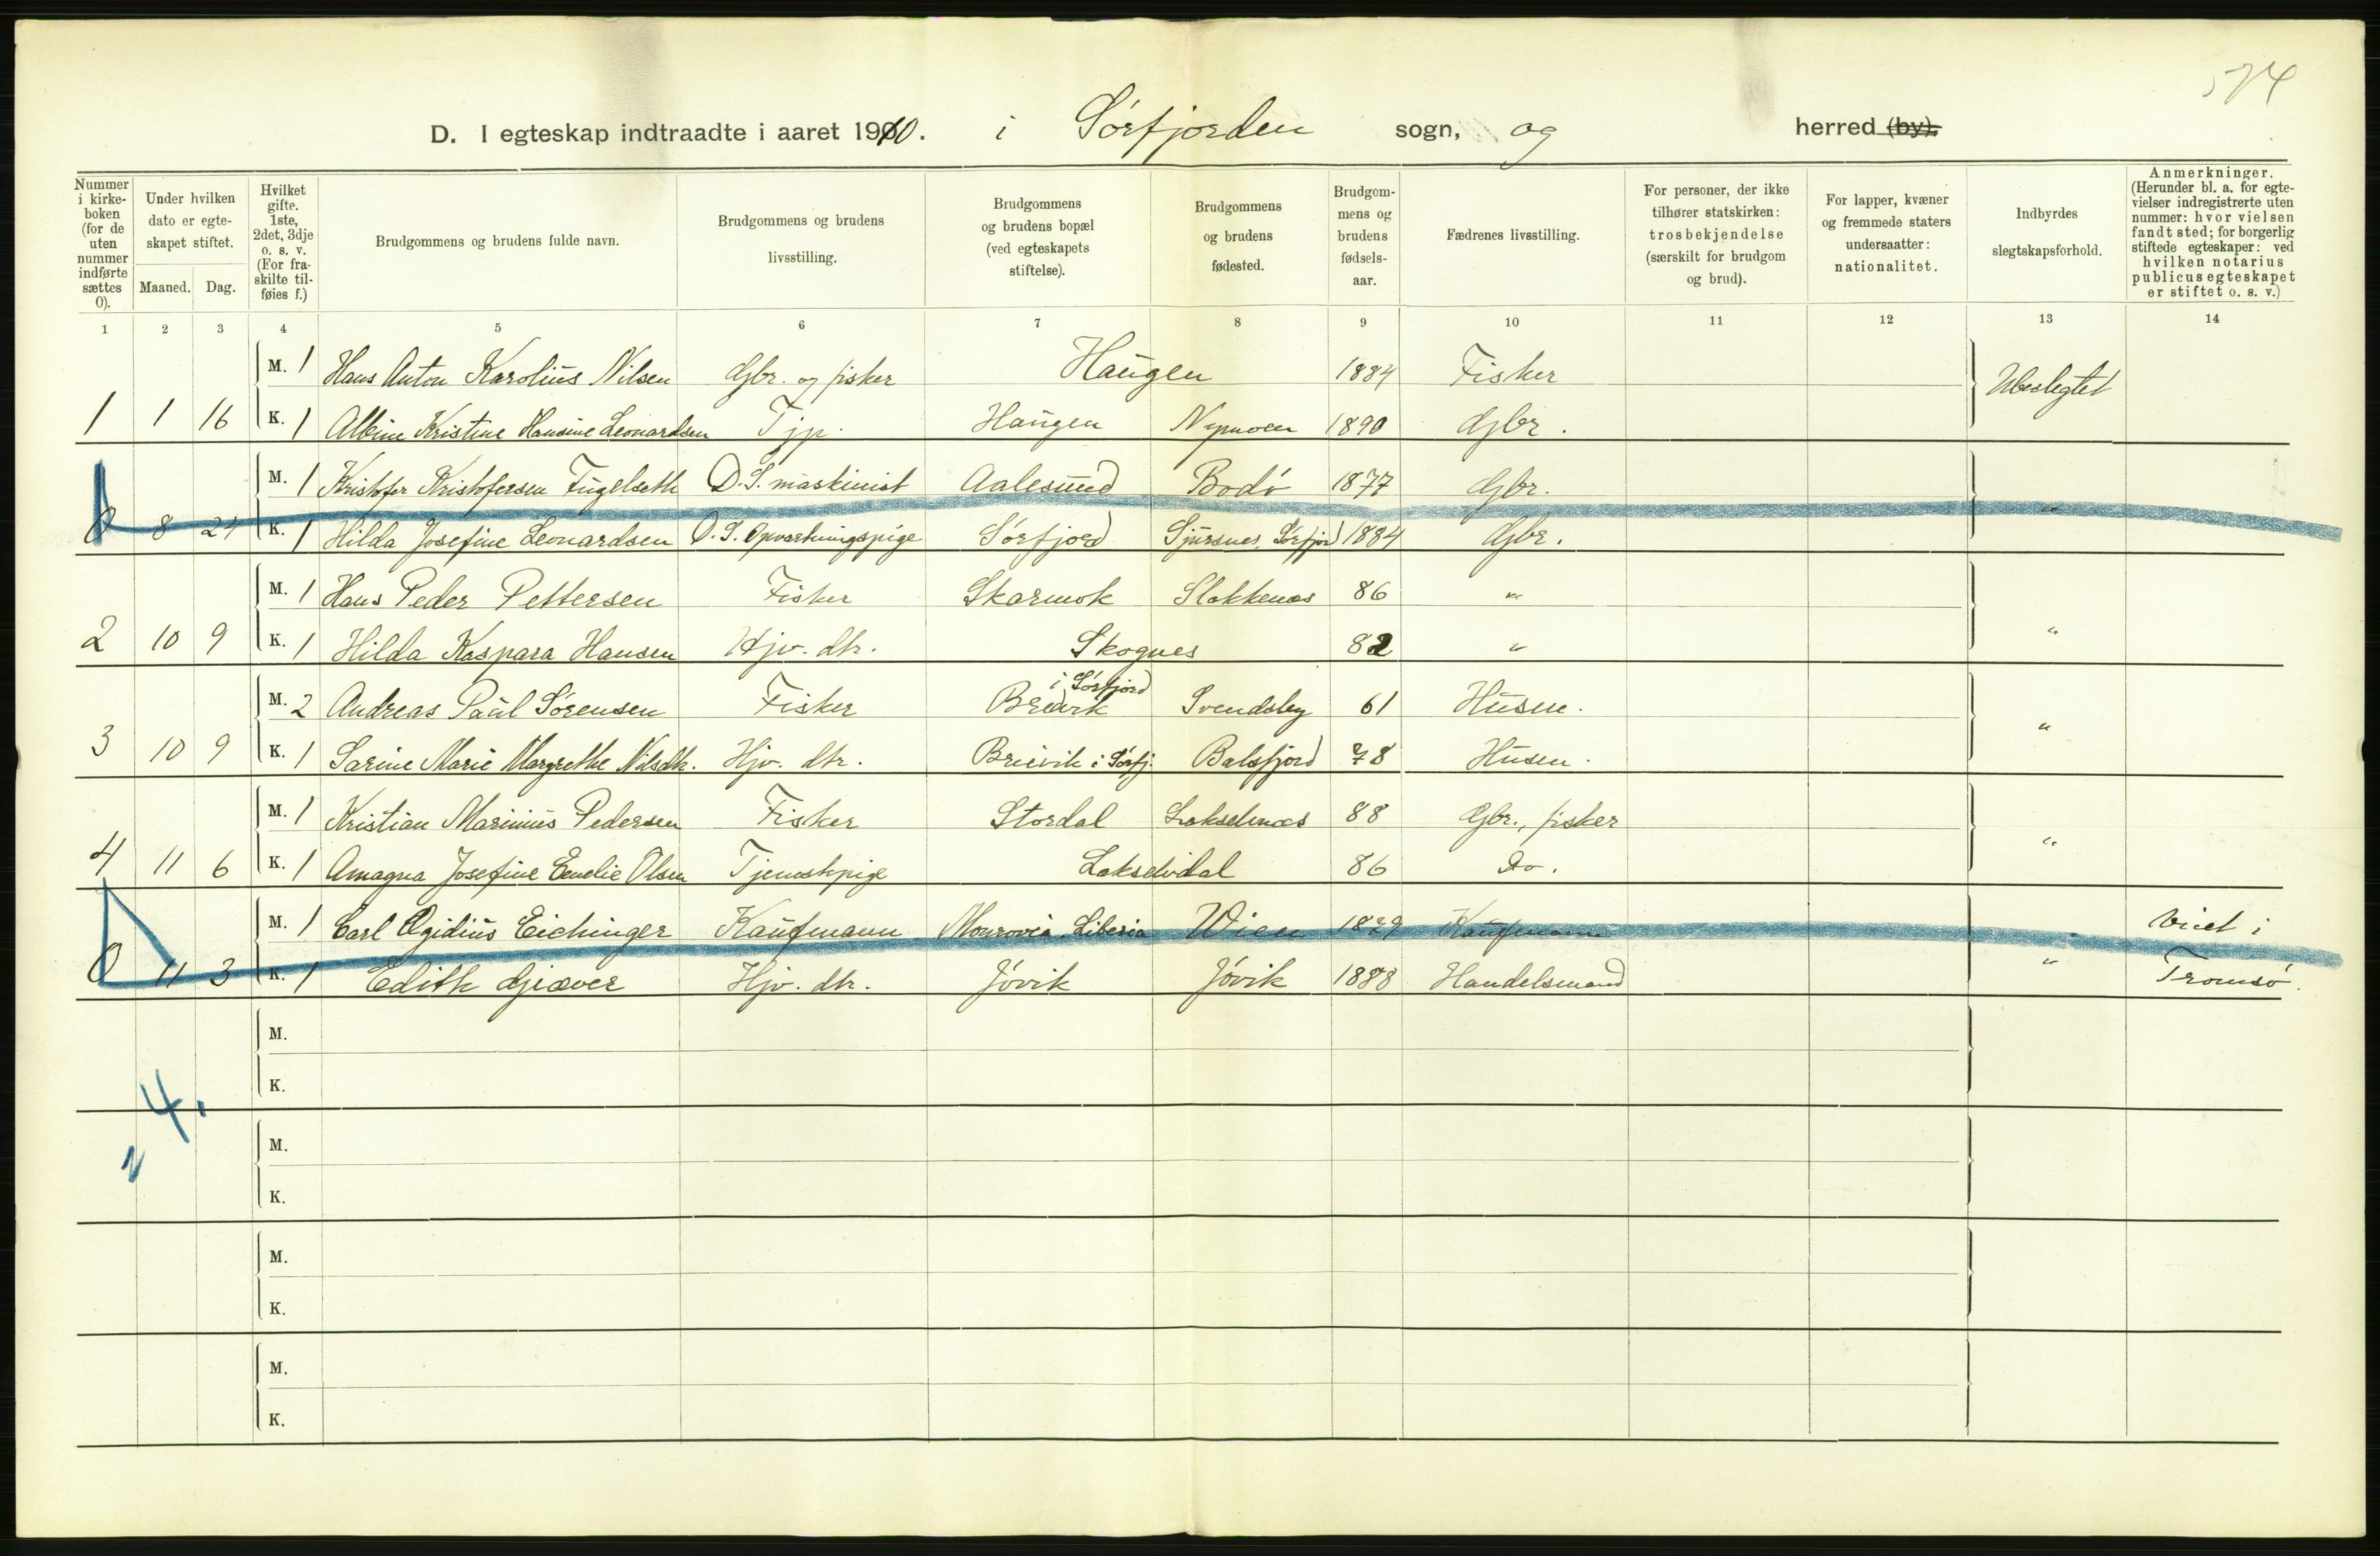 574
D. I egteskap indtraadte i aaret 1910. i Sörfjorden sogn, og herred (by).
Nummer i kirke- boken (for de uten nummer indførte sættes 0).
Under hvilken dato er egte- skapet stiftet.
Maaned. Dag.
Hvilket gifte. 1ste, 2det, 3dje o. s. v. (For fra- skilte til- føies f.)
Brudgommens og brudens fulde navn.
Brudgommens og brudens livsstilling.
Brudgommens og brudens bopæl (ved egteskapets stiftelse).
Brudgommens og brudens fødested.
Brudgom- mens og brudens fødsels- aar.
Fædrenes livsstilling.
For personer, der ikke tilhører statskirken: trosbekjendelse (særskilt for brudgom og brud).
For lapper, kvæner og fremmede staters undersaatter: nationalitet.
Indbyrdes slegtskapsforhold.
Anmerkninger. (Herunder bl. a. for egte- vielser indregistrerte uten nummer: hvor vielsen fandt sted; for borgerlig stiftede egteskaper: ved hvilken notarius publicus egteskapet er stiftet o. s. v.)
1 2 3 4 5 6 7 8 9 10 11 12 13 14
M. 1 Hans Anton Karolius Nilsen Gbr. og fisker Haugen 1884 Fisker Ubeslegtet
1 1 16 K. 1 Albine Kristine Hansine Leonardsen Tjp. Haugen Nymoen 1890 Gbr.
M. 1 Kristofer Kristofersen Fugelseth D.S. maskinist Aalesund Bodö 1877 Gbr. "
0 8 24 K. 1 Hilda Josefine Leonardsen D.S. Opvartningspige Sörfjord Sjursnes, Sörfjord 1884 Gbr.
M. 1 Hans Peder Pettersen Fisker Skarmok Slokkenæs 86 "
2 10 9 K. 1 Hilda Kaspara Hansen Hjv. dtr. Skognes 82 " "
M. 2 Andreas Paul Sörensen Fisker Breivik i Sörfjord Svendsby 61 Husm. "
3 10 9 K. 1 Sarine Marie Margrethe Nilsdtr. Hjv. dtr. Breivik i Sörfj. Balsfjord 78 Husm.
M. 1 Kristian Marinius Pedersen Fisker Stordal Lakselvnæs 88 Gbr., fisker "
4 11 6 K. 1 Amagna Josefine Emelie Olsen Tjenestepige Lakselvdal 86 Do.
M. 1 Carl Ægidius Eichinger Kaufmann Monrovia, Liberia Wien 1879 Kaufmann Viet i
0 11 3 K. 1 Edith Giæver Hjv. dtr. Jövik Jövik 1888 Handelsmand " Tromsö.
M.
K.
4.
M.
K.
M.
K.
M.
K.